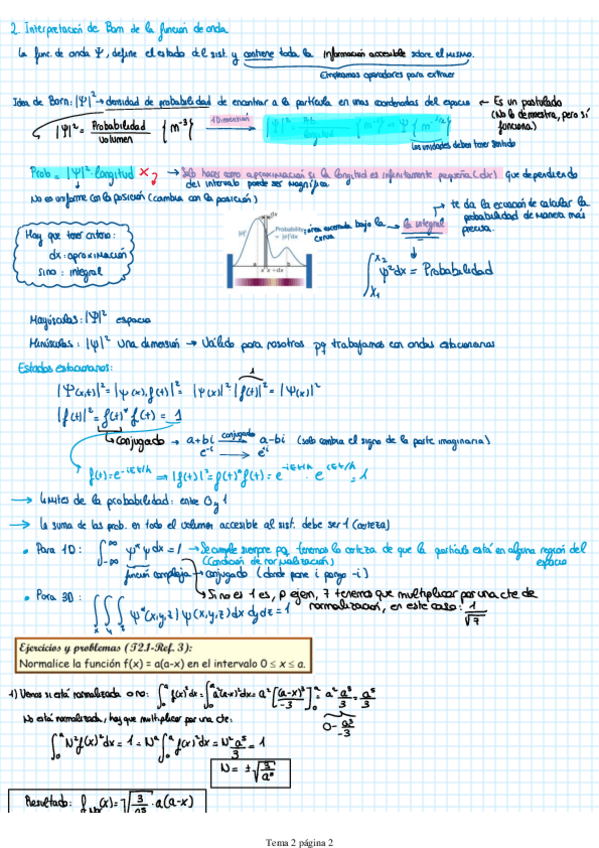 2. Interpretación de Born de la función de onda
La func. de onda Ψ, define el estado del sist. y contiene toda la información accesible sobre el mismo.
Empleamos operadores para extraer
Idea de Born: |Ψ|² → densidad de probabilidad de encontrar a la partícula en unas coordenadas del espacio ← Es un postulado
(No lo demuestra, pero sí funciona)
|Ψ|² = Probabilidad / Volumen { m⁻³ }
1 Dimensión
|Ψ|² = Prob. / longitud { m⁻¹ } → Ψ { m⁻¹/² }
Las unidades deben tener sentido
Prob = |Ψ|² · longitud ✗ → Solo hacer como aproximación si la longitud es infinitamente pequeña (dx) que dependiendo
del intervalo puede ser magnífica
No es uniforme con la posición (cambia con la posición)
→ te da la ecuación de calcular la
probabilidad de manera más
precisa.
Hay que tener criterio:
dx: aproximación
sino: integral
Probability
= |ψ|² dx
x x + dx
área encerrada bajo la curva
la integral
∫ₓ₁ˣ² ψ² dx = Probabilidad
Mayúsculas: |Ψ|² espacio
Minúsculas: |ψ|² una dimensión → Válido para nosotros pq trabajamos con ondas estacionarias
Estados estacionarios:
1
|Ψ(x,t)|² = |ψ(x)·f(t)|² = |ψ(x)|² |f(t)|² = |Ψ(x)|²
|f(t)|² = f(t)* f(t) = 1
↳ Conjugado → a+bi conjugado → a-bi (solo cambia el signo de la parte imaginaria)
e⁻ⁱ → eⁱ
f(t) = e^-iEt/ħ ⇒ |f(t)|² = f(t)* f(t) = e^-iEt/ħ · e^iEt/ħ = 1
→ Límites de la probabilidad: entre 0 y 1
→ La suma de las prob. en todo el volumen accesible al sist. debe ser 1 (certeza)
• Para 1D: ∫₋∞^∞ ψ* ψ dx = 1 → Se cumple siempre pq tenemos la certeza de que la partícula está en alguna región del espacio
(Condición de normalización)
función compleja → conjugado (donde pone i pongo -i)
↳ Si no es 1 es, p ejem, 7 tenemos que multiplicar por una cte de
normalización, en este caso: 1/√7
• Para 3D: ∫ₓ∫ᵧ∫_z ψ*(x,y,z) ψ(x,y,z) dx dy dz = 1
Ejercicios y problemas (T2.1-Ref. 3):
Normalice la función f(x) = a(a-x) en el intervalo 0 ≤ x ≤ a.
1) Vemos si está normalizada o no: ∫₀ᵃ f(x)² dx = ∫₀ᵃ a²(a-x)² dx = a² [(a-x)³/-3]₀ᵃ = a² a³/3 = a⁵/3
0 - a³/-3
No está normalizada, hay que multiplicar por una cte:
∫₀ᵃ N² f(x)² dx = 1 = N² ∫₀ᵃ f(x)² dx = N² a⁵/3 = 1
N = ±√(3/a⁵)
Resultado: (x) = √(3/a⁵) · a(a-x)
Tema 2 página 2